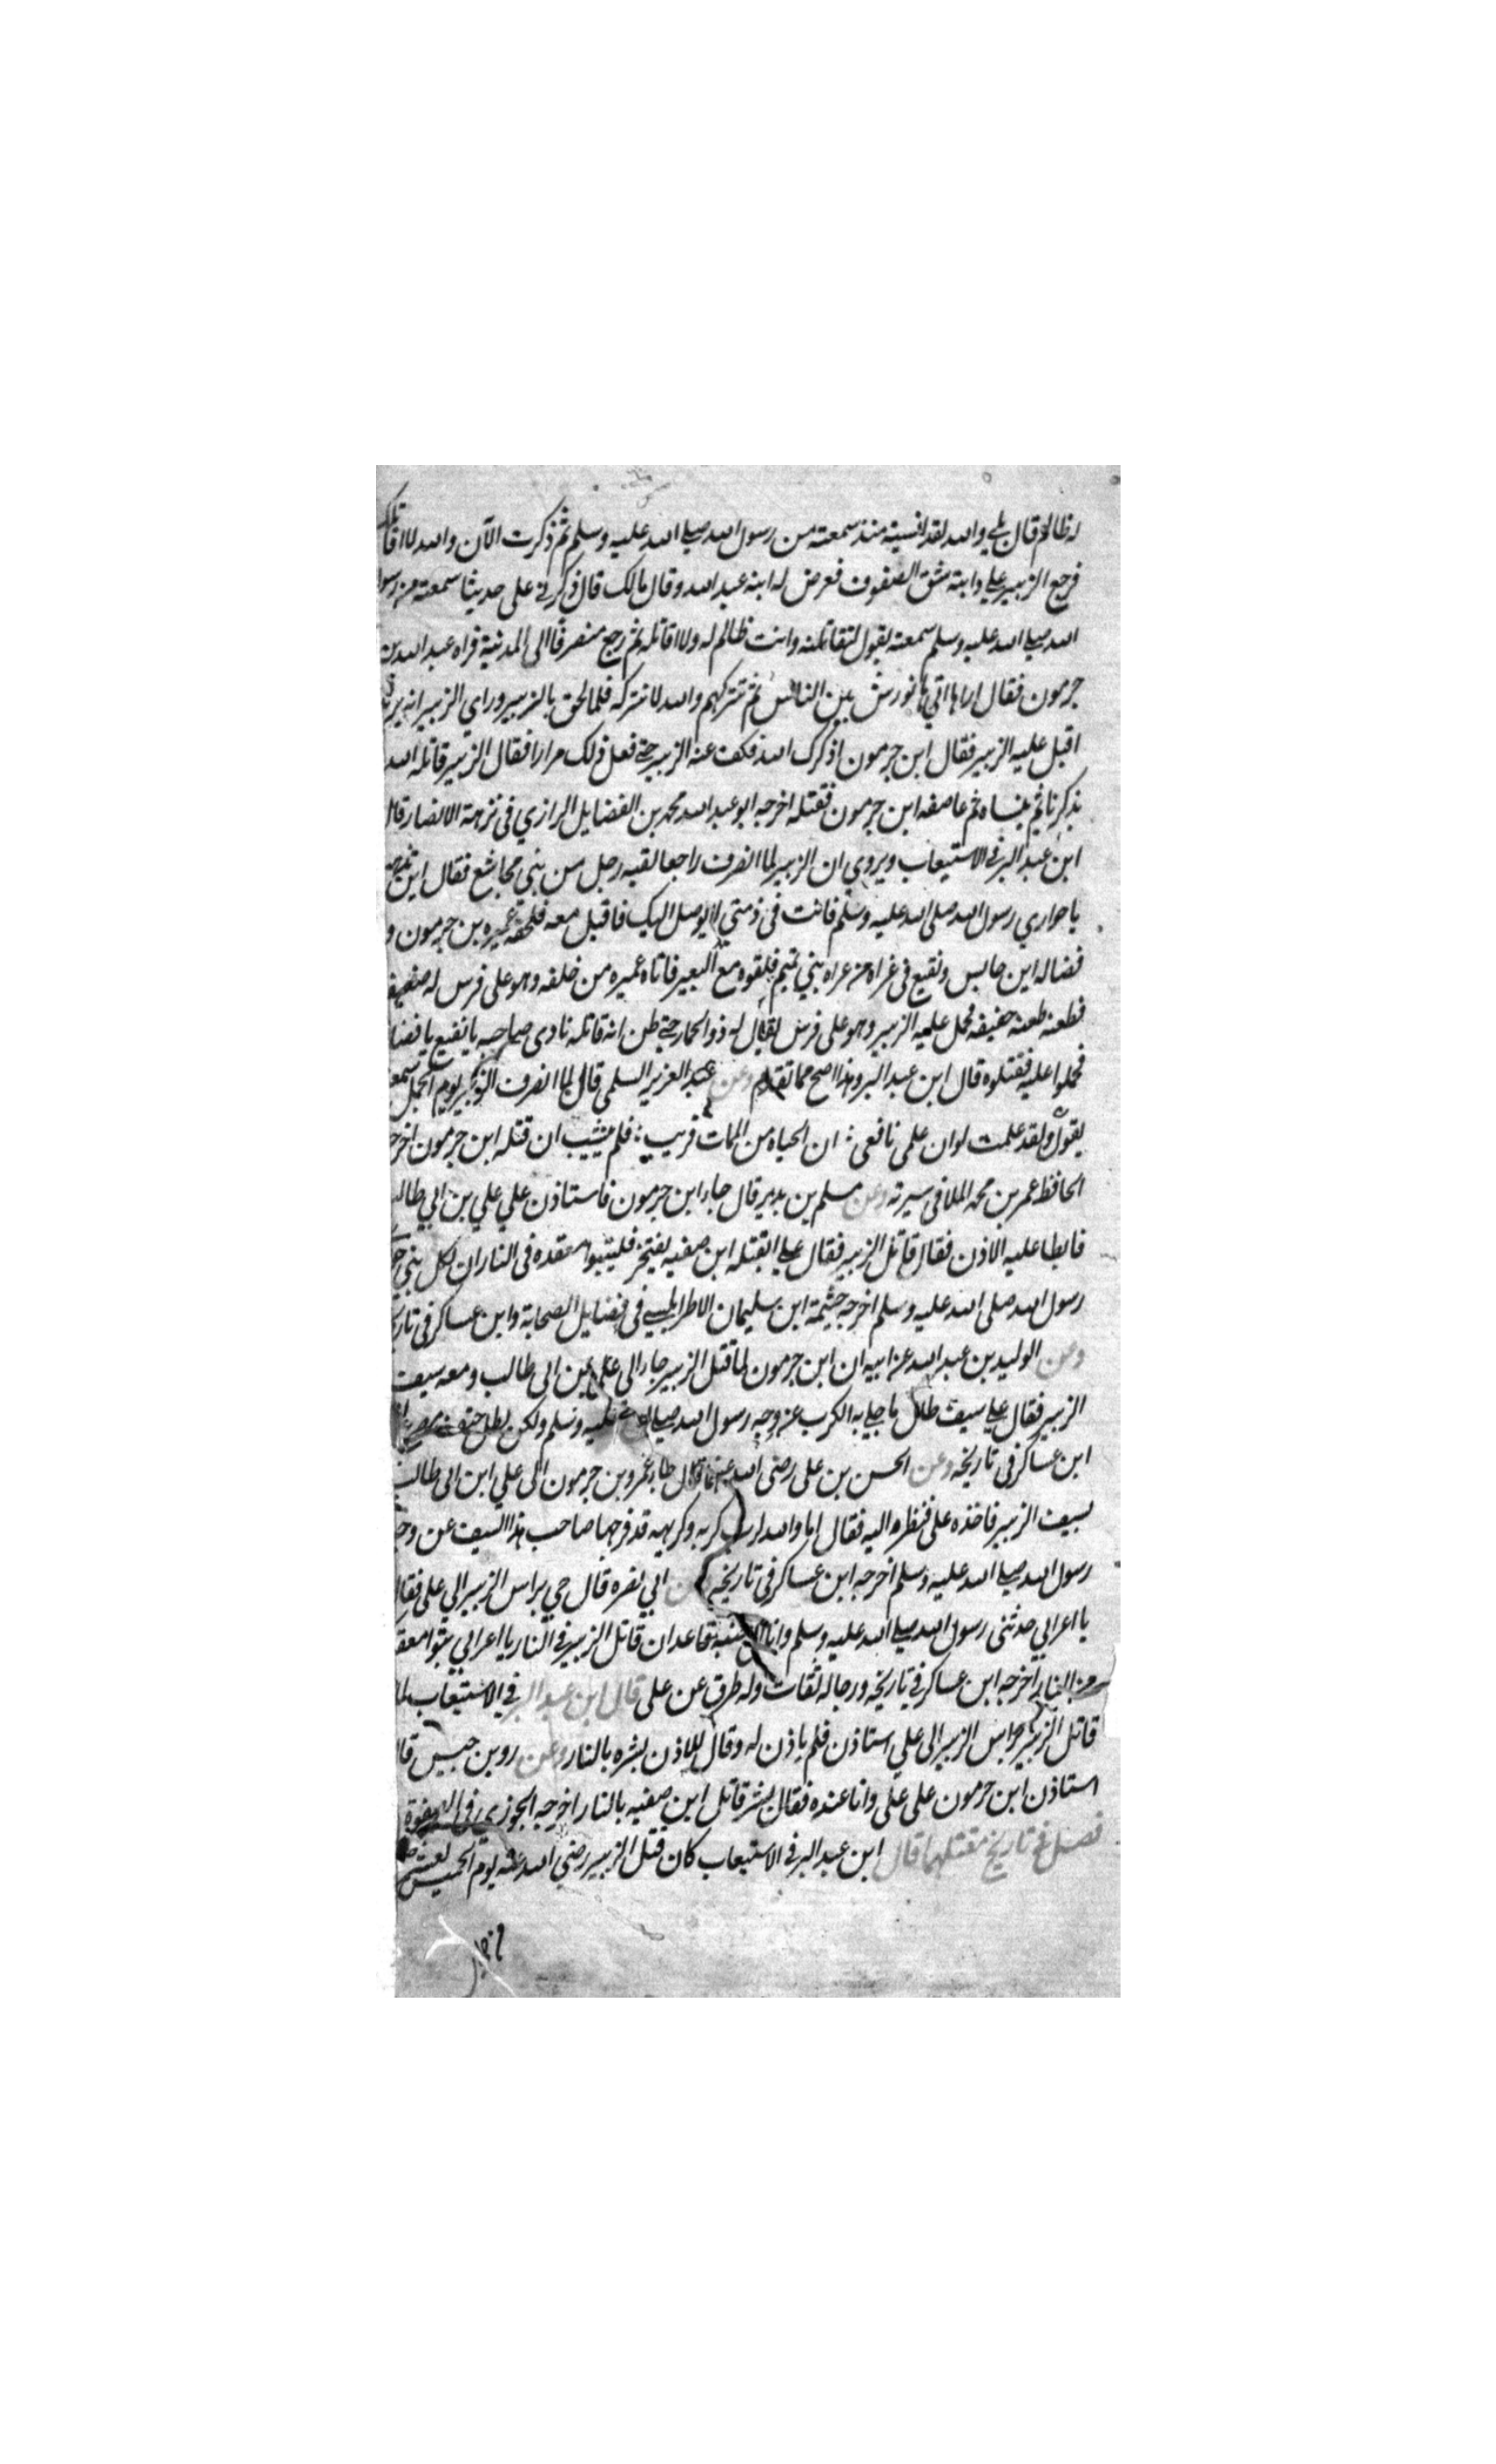 له ظالم قال بلي والله لقد انسيته منذ سمعته من رسول الله صلي الله عليه وسلم ثم ذكرت الآن والله لا اقاتلك
فرجع الزبير علي دابته يشق الصفوف فعرض له ابنه عبد الله وقال مالك قال ذكرني علي حديثا سمعته من رسول
الله صلي الله عليه وسلم سمعته يقول لتقاتلنه وانت ظالم له ولا اقاتله ثم رجع منصرفا الى المدينة فراه عبد الله بن
جرمون فقال اراها اتي ها نورش بين الناس ثم تتركهم والله لا نتركه فلما لحق بالزبير وراي الزبير انه يريد
اقبل عليه الزبير فقال ابن جرمون اذكرك الله فكف عنه الزبير حتي فعل ذلك مرارا فقال الزبير قاتله الله
يذكرنا ثم ينساه ثم عاصفه ابن جرمون فقتله اخرجه ابو عبد الله محمد بن الفضايل الرازي في نزهة الابصار قال
ابن عبد البر في الاستيعاب ويروي ان الزبير لما انصرف راجعا لقيه رجل من بني مجاشع فقال اين تذهب
يا حواري رسول الله صلى الله عليه وسلم فانت في ذمتي لا يوصل اليك فاقبل معه فلحقه عميره بن جرمون و
فضاله ابن حابس ونفيع في غراه من عراه بني تميم فلقوه مع البعير فاتاه عميره من خلفه وهو على فرس له ضعيفه
فطعنه طعنه خفيفه فحمل عليه الزبير وهو على فرس يقال له ذو الحمار حتي ظن انه قاتله نادى صاحبه يا نفيع يا فضاله
فحملوا عليه فقتلوه قال ابن عبد البر وهذا اصح مما تقدم وعن عبد العزيز السلمي قال لما انصرف الزبير يوم الجمل سمعته
يقول ولقد علمت لو ان علمي نافعي ؛ ان الحياه من الممات قريب ؛ فلم يثيب ان قتله ابن جرمون اخرجه
الحافظ عمر بن محمد الملا في سيرته وعن مسلم بن بدير قال جاء ابن جرمون فاستاذن علي علي بن ابي طالب
فابطا عليه الاذن فقال قاتل الزبير فقال علي ابقتله ابن صفيه يفتخر فليتبوا مقعده في النار ان لكل نبي حواري
رسول الله صلى الله عليه وسلم اخرجه خيثمة ابن سليمان الاطرابلسي في فضايل الصحابة وابن عساكر في تاريخه
وعن الوليد بن عبد الله عن ابيه ان ابن جرمون لما قتل الزبير جاء الى علي بن ابى طالب ومعه سيف
الزبير فقال علي سيف طال ما جلي به الكرب عن وجه رسول الله صلي الله عليه وسلم ولكن
ابن عساكر في تاريخه وعن الحسن بن على رضى الله عنهما قال جاء عمرو بن جرمون الى علي ابن ابى طالب
بسيف الزبير فاخذه على فنظر اليه فقال اما والله لرب كربه وكربهه قد فرجها صاحب هذا السيف عن وجه
رسول الله صلي الله عليه وسلم اخرجه ابن عساكر في تاريخه وعن ابي نضره قال جي براس الزبير الي على فقال
يا اعرابي حدثني رسول الله صلي الله عليه وسلم وانا الى جنبه قاعد ان قاتل الزبير في النار يا اعرابي تبوا مقعدك
من النار اخرجه ابن عساكر في تاريخه ورجاله ثقات وله طرق عن على قال ابن عبد البر في الاستيعاب لما
قاتل الزبير براس الزبير الى علي استاذن فلم ياذن له وقال للاذن بشره بالنار وعن زر بن حبيش قال
استاذن ابن جرمون على علي وانا عنده فقال بشر قاتل ابن صفيه بالنار اخرجه الجوزي في الصفوة
فصل في تاريخ مقتلهما قال ابن عبد البر في الاستيعاب كان قتل الزبير رضي الله عنه يوم الخميس لعشر